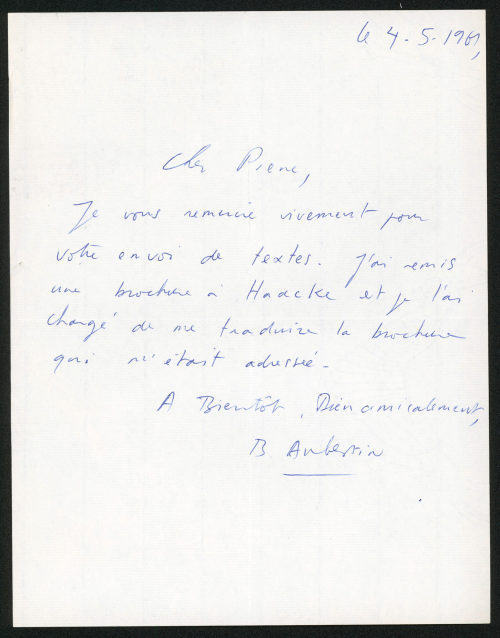 le 4-5-1961,
Cher Piene,
Je vous remercie vivement pour
votre envoi de textes. J'ai remis
une brochure à Haacke et je l'ai
chargé de me traduire la brochure
qui m'était adressée.
A Bientôt, Bien amicalement,
B Aubertin